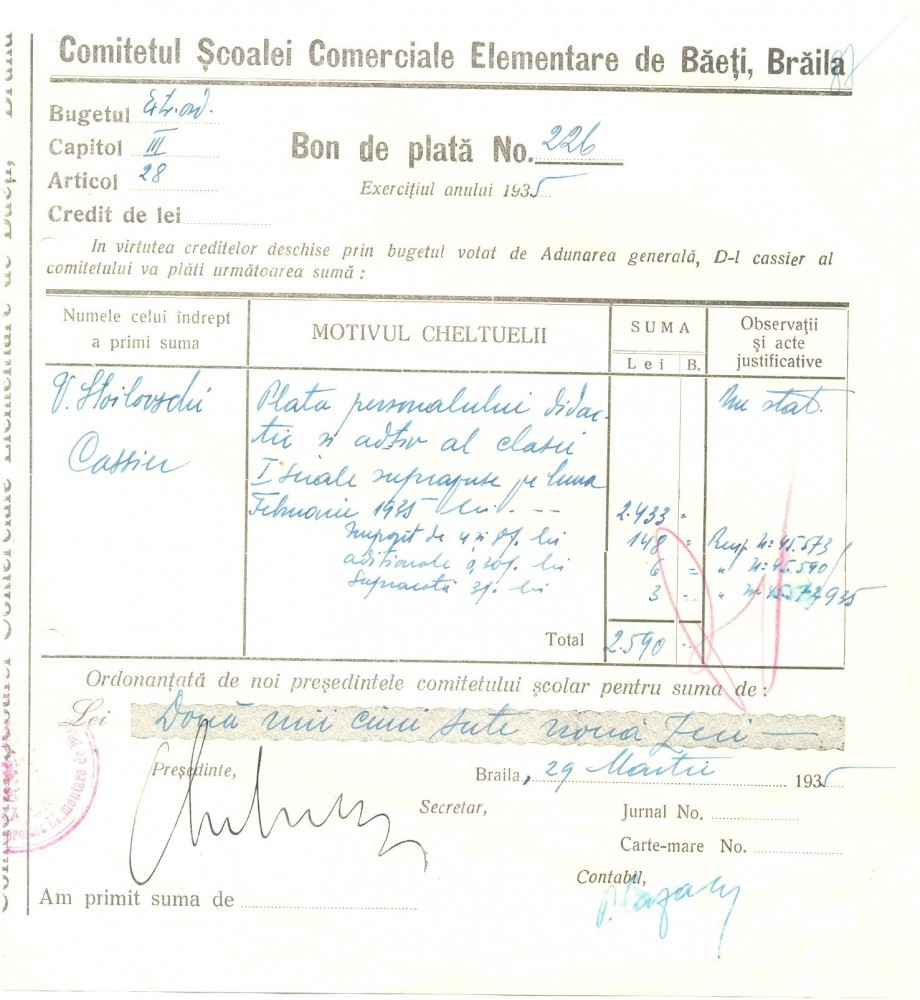 Comitetul Școalei Comerciale Elementare de Băeți, Brăila
Bugetul Ext.ord.
Capitol III
Articol 28
Credit de lei
Bon de plată No. 226
Exercițiul anului 1935
In virtutea creditelor deschise prin bugetul votat de Adunarea generală, D-l cassier al
comitetului va plăti următoarea sumă :
Numele celui îndrept
a primi suma
MOTIVUL CHELTUELII
SUMA
Lei B.
Observații
și acte
justificative
V. Stoilovschi
Cassier
Plata personalului didac-
tic si adtiv al clasei
I seriale suprapuse pe luna
Februarie 1935 lei - - - 2.433 =
Impozit de 4 si 8% lei 148 =
aditionale 0,20% lei 6 =
Supracotă 3% lei 3 --
Un stat.
Recip N: 45.573
" N: 45.590
" 935
Total 2.590 --
Ordonanțată de noi președintele comitetului școlar pentru suma de :
Lei Două mii cinci sute nouă zeci —
Președinte,
Braila, 29 Martie 1935
Secretar,
Jurnal No.
Carte-mare No.
Contabil,
Am primit suma de